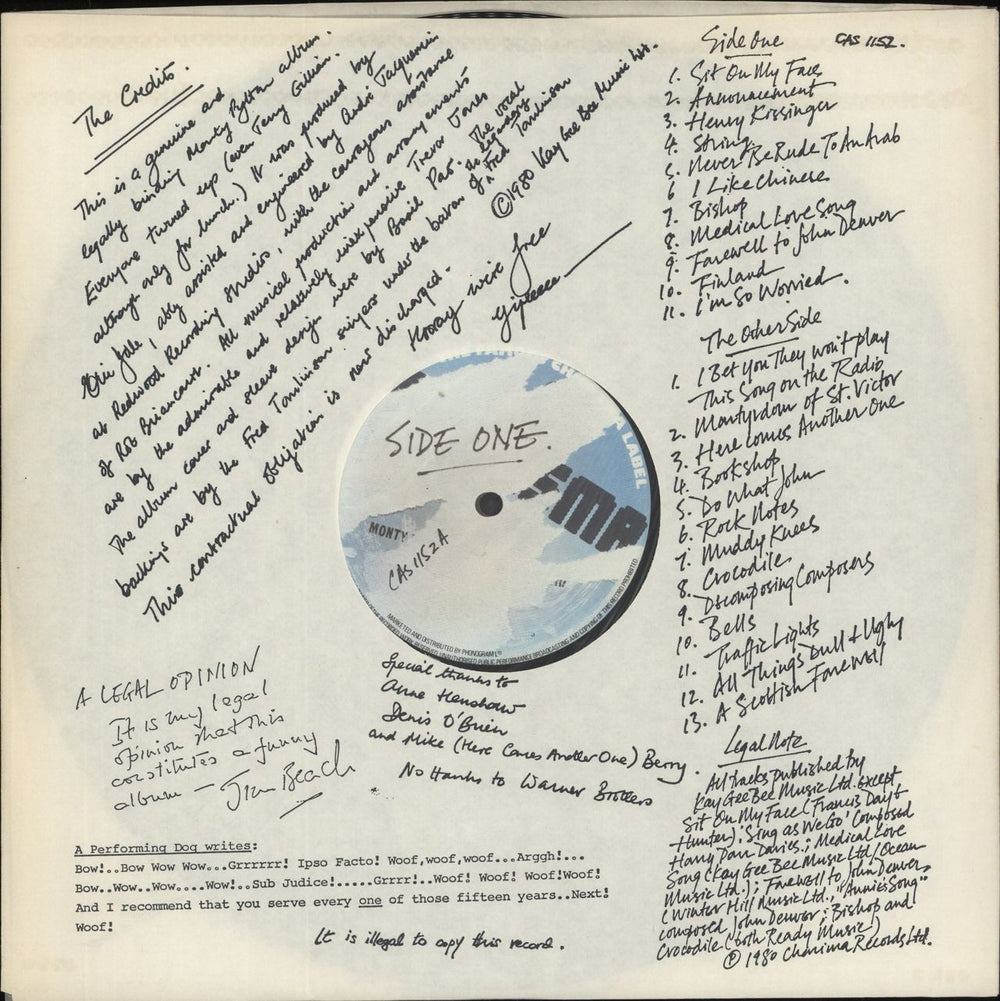 The Credits.
This is a genuine and
legally binding Monty Python album.
Everyone turned up (even Terry Gilliam.
although only for lunch.) It was produced by
Eric Idle, ably assisted and engineered by André Jacquemin
at Redwood Recording Studios, with the courageous assistance
of Rob Briancourt. All musical production and arrangements
are by the admirable and relatively inexpensive Trevor Jones
The album cover and sleeve design were by Basil Pao. The vocal
backings are by the Fred Tomlinson singers under the baton of the legendary Fred Tomlinson
This contractual obligation is now discharged.
©1980 Kay Gee Bee Music Ltd.
Hooray we're free
yipeeee
Side One
CAS 1152.
1. Sit On My Face
2. Announcement
3. Henry Kissinger
4. String
5. Never Be Rude To An Arab
6 I Like Chinese
7. Bishop
8. Medical Love Song
9. Farewell to John Denver
10. Finland
11. I'm So Worried.
The Other Side
1. I Bet You They won't play
This Song on the Radio
2. Martyrdom of St. Victor
3. Here Comes Another One
4. Bookshop
5. Do What John
6. Rock Notes
7. Muddy Knees
8. Crocodile
9. Decomposing Composers
10. Bells
11. Traffic Lights
12. All Things Dull & Ugly
13. A Scottish Farewell
Legal Note
All tracks published by
Kay Gee Bee Music Ltd. except
Sit On My Face (Francis Day &
Hunter); 'Sing as We Go' Composed
Harry Parr Davies.; Medical Love
Song (Kay Gee Bee Music Ltd/Ocean
Music Ltd.); Farewell to John Denver
(Winter Hill Music Ltd., "Annie's Song"
composed John Denver; Bishop and
Crocodile (both Ready Music)
℗ 1980 Charisma Records Ltd.
SIDE ONE.
A LABEL
MONTY
CAS 1152 A
MARKETED AND DISTRIBUTED BY PHONOGRAM
UNAUTHORISED PUBLIC PERFORMANCE BROADCASTING AND COPYING OF THIS RECORD PROHIBITED
Special thanks to
Anne Henshaw
Denis O'Brien
and Mike (Here Comes Another One) Berry.
No thanks to Warner Brothers
A LEGAL OPINION
It is my legal
opinion that this
constitutes a funny
album — Jim Beach
A Performing Dog writes:
Bow!..Bow Wow Wow...Grrrrrr! Ipso Facto! Woof,woof,woof...Arggh!...
Bow..Wow..Wow....Wow!..Sub Judice!.....Grrrr!..Woof! Woof! Woof!Woof!
And I recommend that you serve every one of those fifteen years..Next!
Woof!
It is illegal to copy this record.